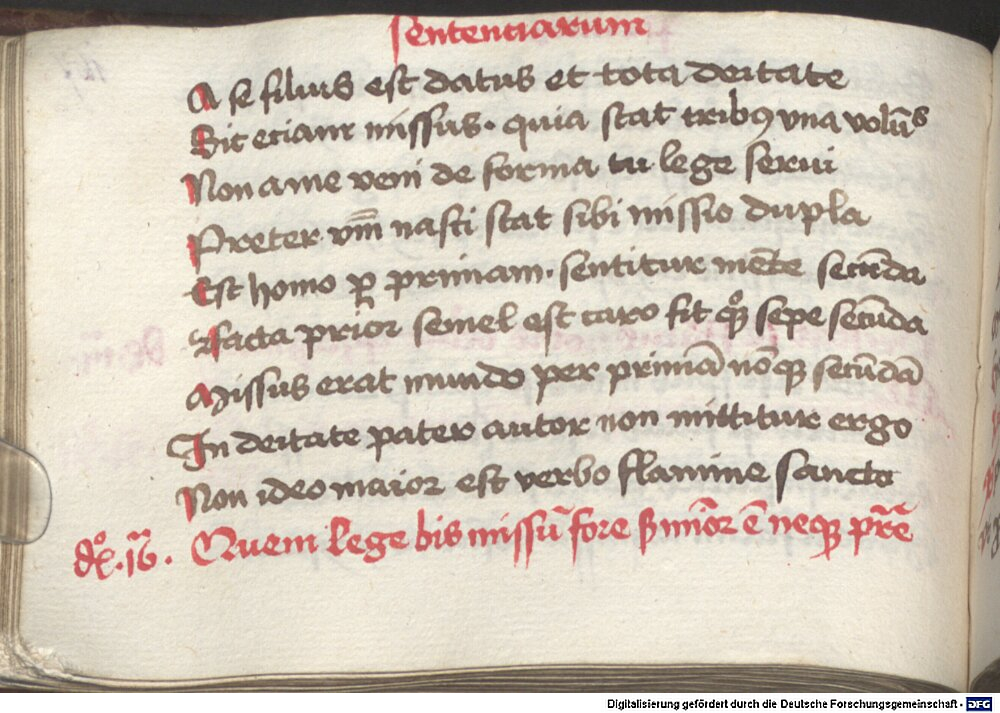 Sentenciarum
A se filius est datus et tota deitate
Sic eciam missus · quia stat tribꝫ vna volūs
Non a me veni de forma tu lege serui
Preter vm̄ nasci stat sibi missio dupla
Est homo ꝑ primam · sentitur mēte secūda
Facta prior semel est caro fit qͦꝫ sepe secūda
Missus erat mundo per primā nōqꝫ secūdā
In deitate pater autor non mittitur ergo
Non ideo maior est verbo flamine sancto
dꝭͦ · 16 · Quem lege bis missū fore ꝯ miōr ē neqꝫ pr̄e
Digitalisierung gefördert durch die Deutsche Forschungsgemeinschaft - DFG